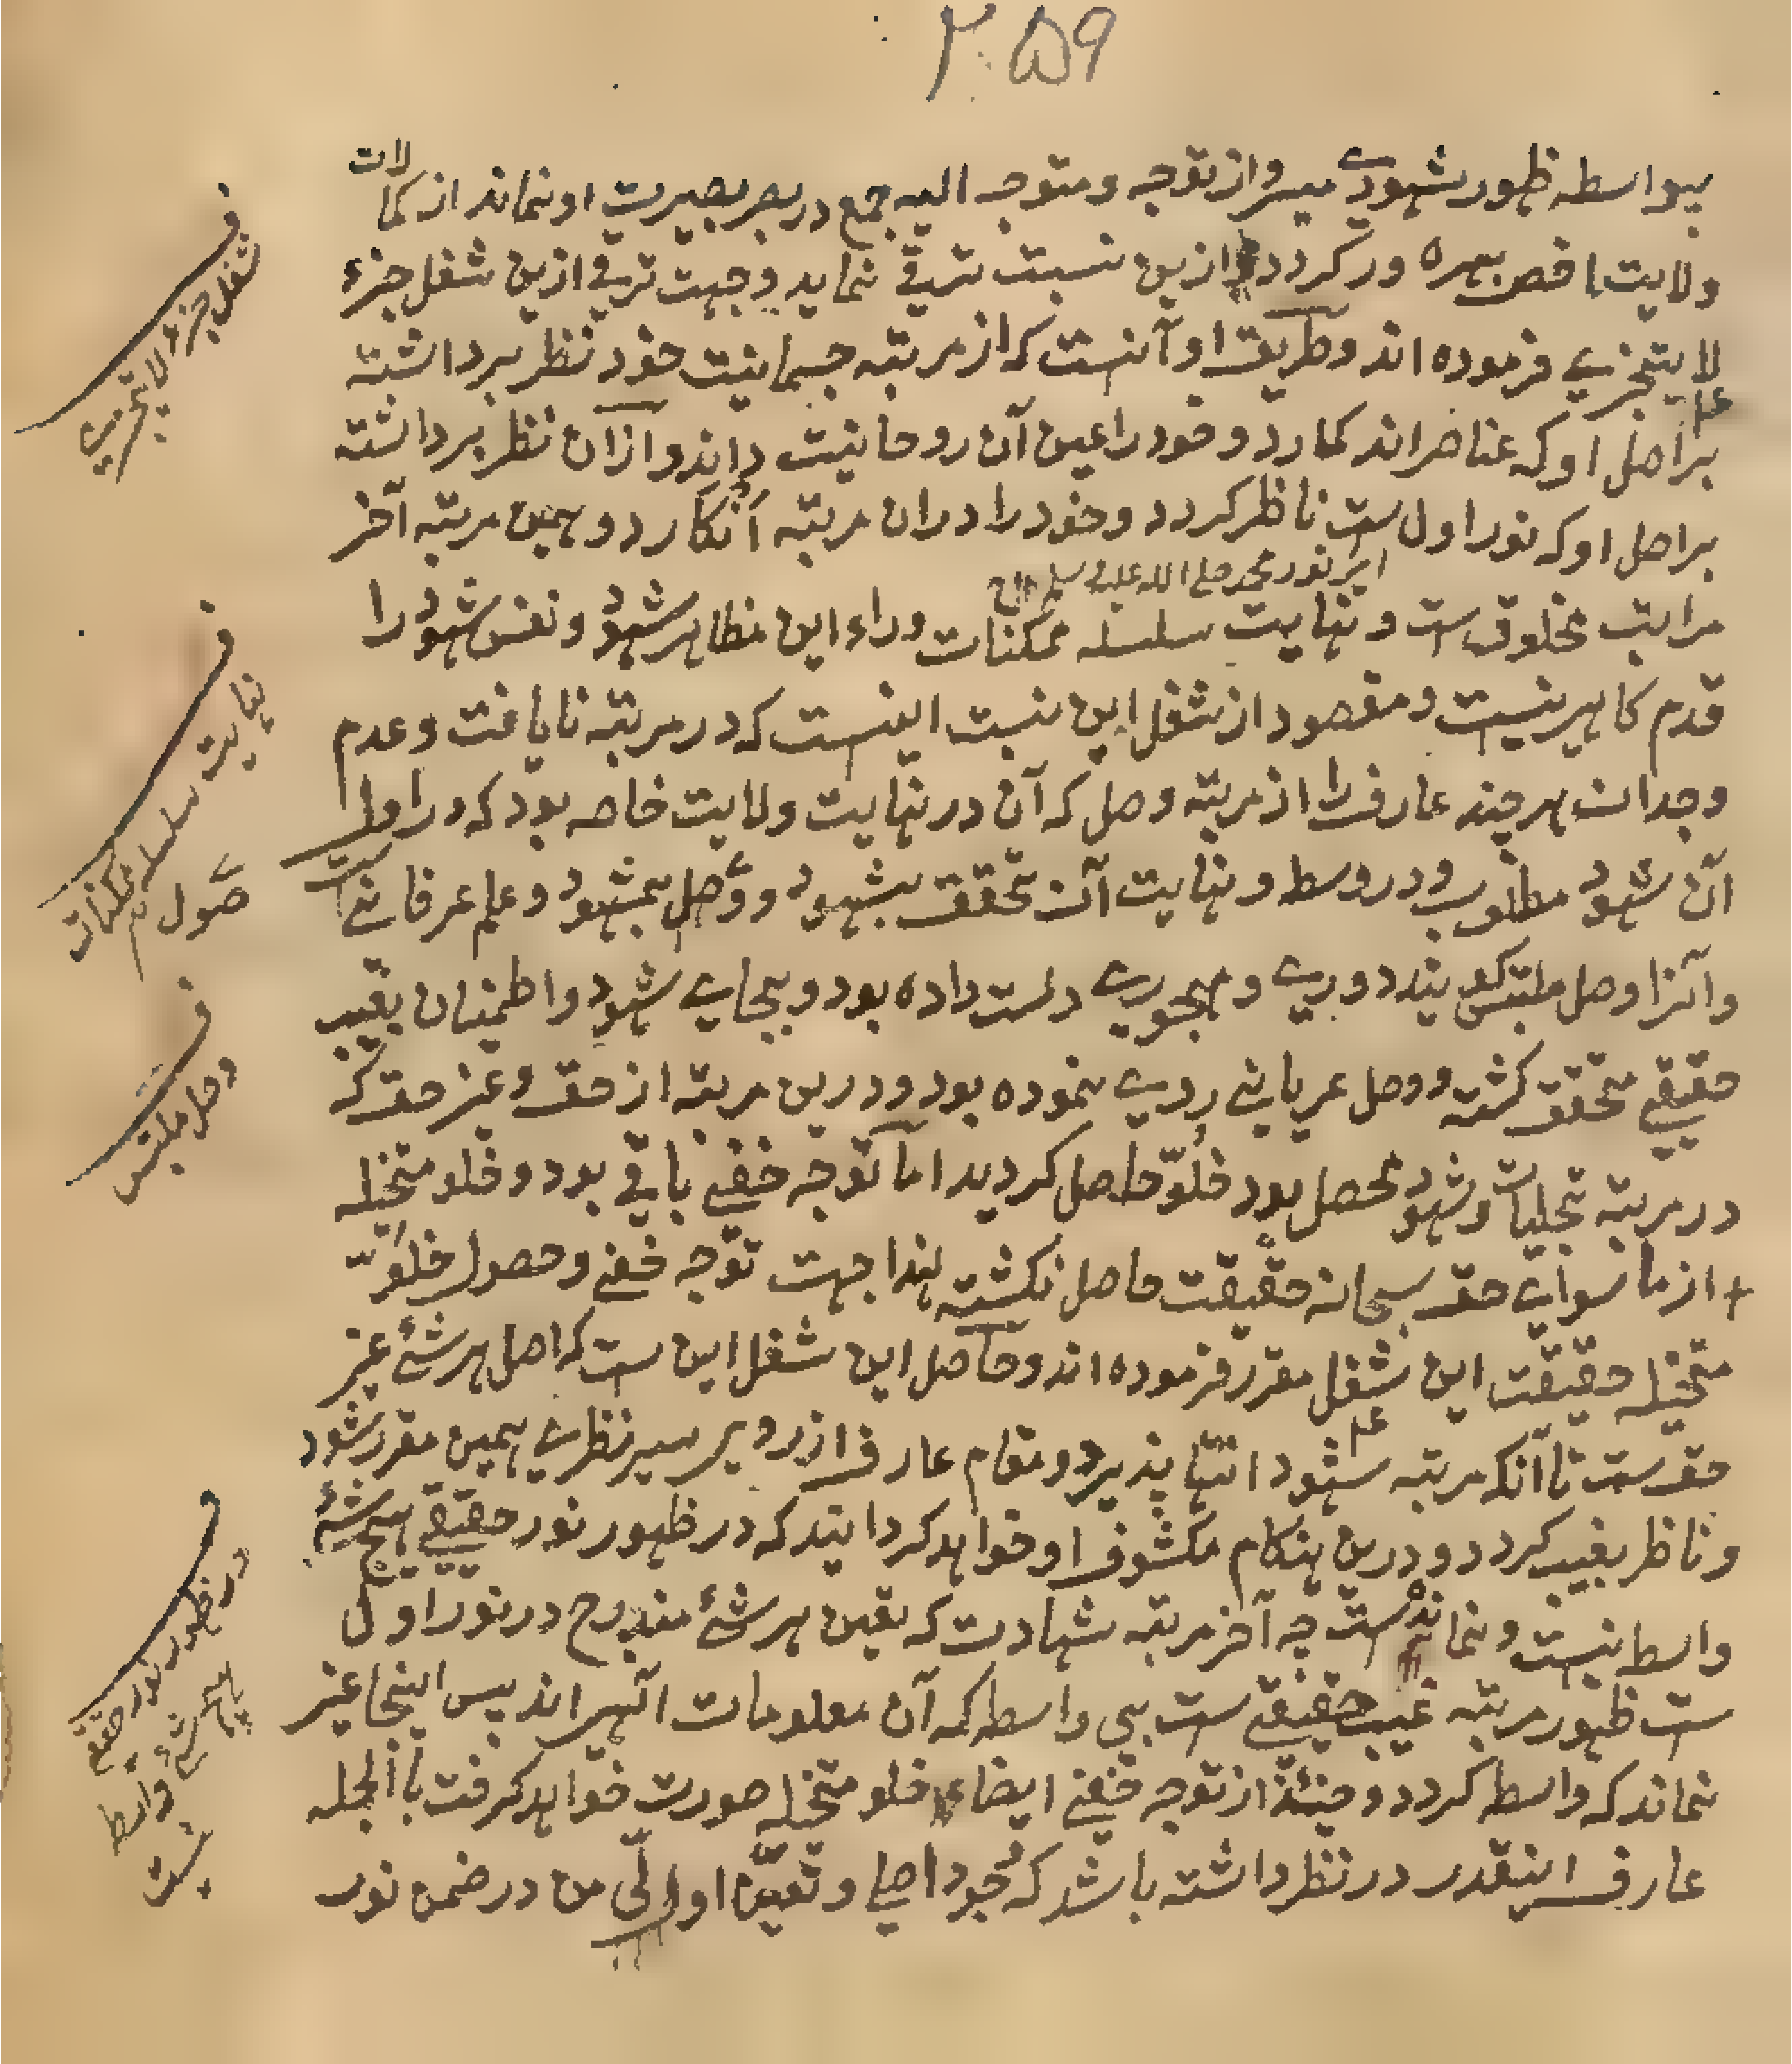 ۲۵۹
بیواسطه ظهور شهودی میسر و از توجه و متوجه الیه جمع در بصر بصیرت او نماند از کمالات
ولایت اخص بهره ور کردد و ازین نسبت ترقی نماید و جهت ترقی ازین شغل جزء
لا یتجزی فرموده اند و طریق او آنست که از مرتبه جسمانیت خود نظر برداشته
بر اصل او که عناصر اند کمارد و خود را عین آن روحانیت داند و ازان نظر برداشته
بر اصل او که نور اول ست ناظر کردد و خود را دران مرتبه انکارد و همین مرتبه آخر
ای نور محمد صلی الله علیه وسلم
مراتب مخلوق ست و نهایت سلسله ممکنات وراء این مظاهر شهود و نفس شهود را
قدم کاهی نیست و مقصود از شغل این نسبت اینست که در مرتبه نایافت و عدم
وجدان هر چند عارف را از مرتبه وصل که آن در نهایت ولایت خاصه بود که در اول
آن شهود مطلوب و در وسط و نهایت آن تحقق بشهود و وصل بمشهود و علم عرفانی ست
و آنرا وصل ملتبس کویند دوری و مهجوری دست داده بود و بجای شهود و اطمئنان بغیب
حقیقی متحقق کشته و وصل عریانی روی نموده بود و درین مرتبه از حق و غیر حق که
در مرتبه تجلیات و شهود محصل بود خلوّ حاصل کردید اما توجه خفی باقی بود و خلو متخیله
+ از ما سوای حق سبحانه حقیقت حاصل نکشته لهذا جهت توجه خفی و حصول خلوّ
متخیله حقیقت این شغل مقرر فرموده اند و حاصل این شغل این ست که اصل هر شئ غیر
حق ست تا آنکه مرتبه شهود انتها پذیرد و مقام عارف از روی سیر نظری همین مقرر شود
و ناظر بغیب کردد و درین هنکام مکشوف او خواهد کردانید که در ظهور نور حقیقی هیچ شئ
واسطه نیست و نمانده ست چه آخر مرتبه شهادت که تعین هر شئ مندرج در نور اول
ست ظهور مرتبه غیب حقیقی ست بی واسطه که آن معلومات الهی اند پس اینجا غیر
نماند که واسطه کردد و حینئذ از توجه خفی ایضا خلو متخیله صورت خواهد کرفت بالجمله
عارف اینقدر در نظر داشته باشد که وجود اصلی و تعیّن اوّلی من در ضمن نور
شغل جزء لا یتجزی
نهایت سلسله ممکنات
وصل ملتبس
در ظهور نور حقیقی
هیچ شئ واسطه
نیست